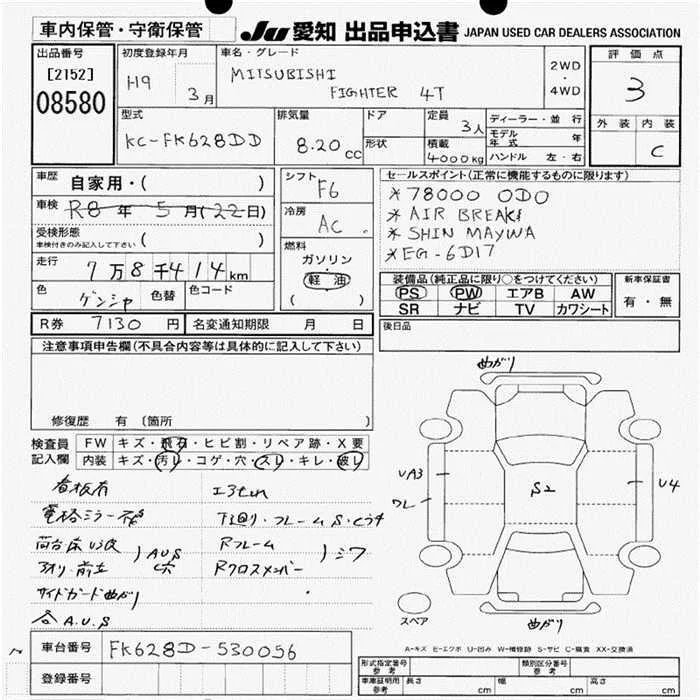 車内保管・守衛保管 Ju 愛知 出品申込書 JAPAN USED CAR DEALERS ASSOCIATION
出品番号
[2152]
08580
初度登録年月
H9 3月
車名・グレード
MITSUBISHI
FIGHTER 4T
2WD
・
4WD
評価点
3
外装 内装
C
型式
KC-FK628DD
排気量
8.20cc
ドア
形状
定員
3人
積載
4000kg
ディーラー・並行
モデル年式 年
ハンドル 左・右
車歴 自家用・( )
車検 R8年5月(22日)
受検形態
車検付きのみ記入して下さい ( )
走行 7万8千414km
色 ゲンシャ 色替 色コード
シフト F6
冷房 AC
燃料
ガソリン
軽油
( )
セールスポイント(正常に機能するものに限ります)
*78000 ODO
*AIR BREAK
*SHIN MAYWA
*EG-6D17
装備品(純正品に限り○をつけてください)
PS PW エアB AW
SR ナビ TV カワシート
新車保証書
有・無
R券 7130円 名変通知期限 月 日
後日品
注意事項申告欄(不具合内容等は具体的に記入して下さい)
修復歴 有〔箇所 〕
検査員記入欄
FW キズ・飛石・ヒビ割・リペア跡・X要
内装 キズ・汚れ・コゲ・穴・スレ・キレ・破レ
看板有
電格ミラー不良
下回り・フレームS・C
Rフレーム
Rクロスメンバー
シワ
アオリ・
AUS
サイドガード曲がり
A.U.S
曲がり
UA3
ワレ
S2
U4
スペア
曲がり
A-キズ E-エクボ U-凹み W-補修跡 S-サビ C-腐食 XX-交換済
車台番号 FK628D-530056
登録番号
形式指定番号 参考 類別区分番号 参考
車庫証明用 参考 長さ cm 幅 cm 高さ cm